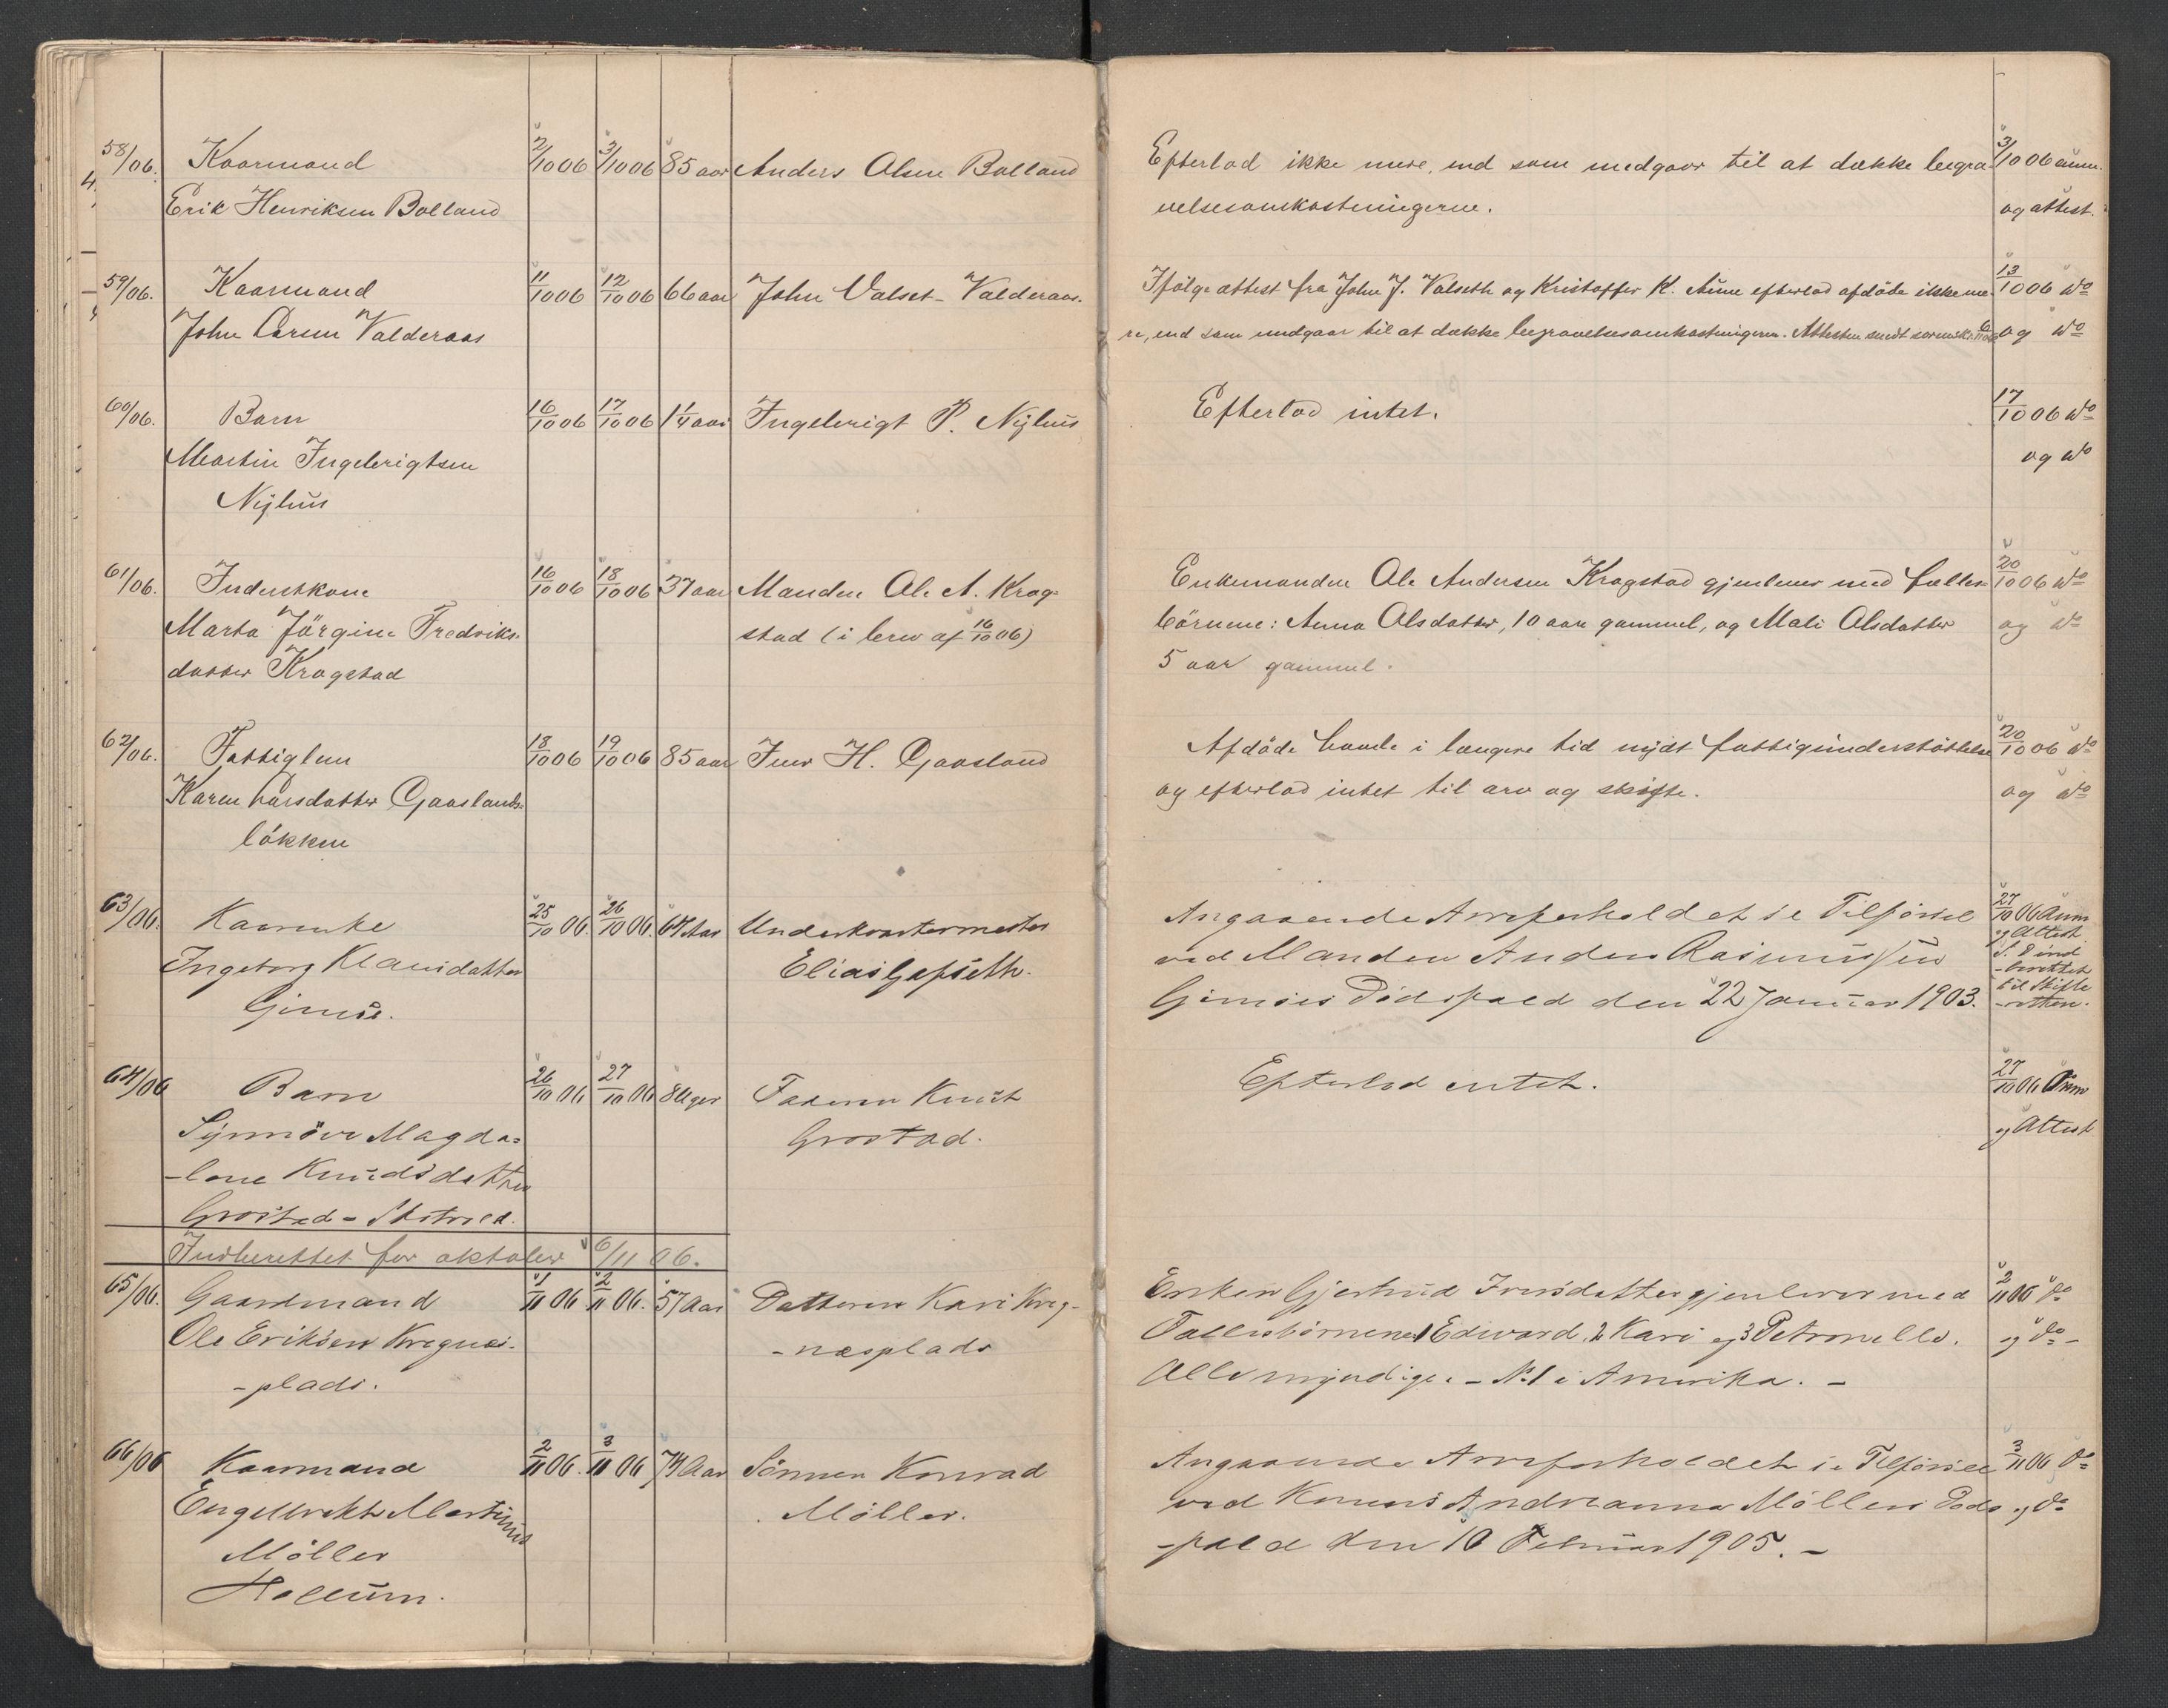 58/06. Kaarmand 2/10 06 3/10 06 85 aar Anders Olsen Bolland Efterlod ikke mere, end som medgaar til at dække begra- 3/10 06 anm.
Erik Henriksen Bolland velsesomkostningerne. og attest.
59/06. Kaarmand 11/10 06 12/10 06 66 aar John Valset-Valderaas. Ifölge attest fra John J. Valseth og Kristoffer K. Aune efterlod afdöde ikke me- 13/10 06 do
John Larsen Valderaas re, end som medgaar til at dække begravelsesomkostningerne. Attesten sendt sorenskr. 6/11 06 og do
60/06. Barn 16/10 06 17/10 06 1 1/4 aar Ingebrigt P. Nyhus Efterlod intet. 17/10 06 do
Martin Ingebrigtsen og do
Nyhus
61/06. Inderstkone 16/10 06 18/10 06 37 aar Manden Ole A. Krog- Enkemanden Ole Andersen Krogstad gjenlever med fælles- 20/10 06 do
Marta Jörgine Fredriks- stad (i brev af 16/10 06) börnene: Anna Olsdatter, 10 aar gammel, og Mali Olsdatter og do
datter Krogstad 5 aar gammel.
62/06. Fattiglem 18/10 06 19/10 06 85 aar Iver H. Gaasland Afdöde havde i længere tid nydt fattigunderstöttelse 20/10 06 do
Karen Larsdatter Gaaslands- og efterlod intet til arv og skifte. og do
lökken
63/06. Kaarenke 25/10 06. 26/10 06. 64 Aar Underkvartermester Angaaende Arveforholdet se Tilförsel 27/10 06 Anm
og Attest
Ingeborg Klausdatter Elias Gafseth. ved Manden Anders Rasmussen S. D. ind
-berettet
Gimse. Gimses Dödsfald den 22 Januar 1903. til Skifte
-retten.
64/06 Barn 26/10 06 27/10 06 8 Uger Faderen Knut Efterlod intet. 27/10 06 Anm
Synnöve Magda- Grostad. og Attest
-lene Knudsdatter
Grostad-
Indberettet for oktober 6/11 06.
65/06. Gaardmand 1/11 06 2/11 06. 57 Aar Datteren Kari Kreg- Enken Gjertrud Iversdatter gjenlever med 2/11 06 do
Ole Eriksen Kregnæs- -næsplads Fællesbörnene 1 Edvard, 2 Kari og 3 Petronelle. og do -
-plads. Alle myndige. - No 1 i Amerika. -
66/06 Kaarmand 2/11 06. 3/11 06 74 Aar Sönnen Konrad Angaaende Arveforholdet se Tilförsel 3/11 06 do
Engelbrekt Martinus Möller. ved Konens Andreanna Möllers Döds og do
Möller -fald den 10 Februar 1905. -
Hollum.